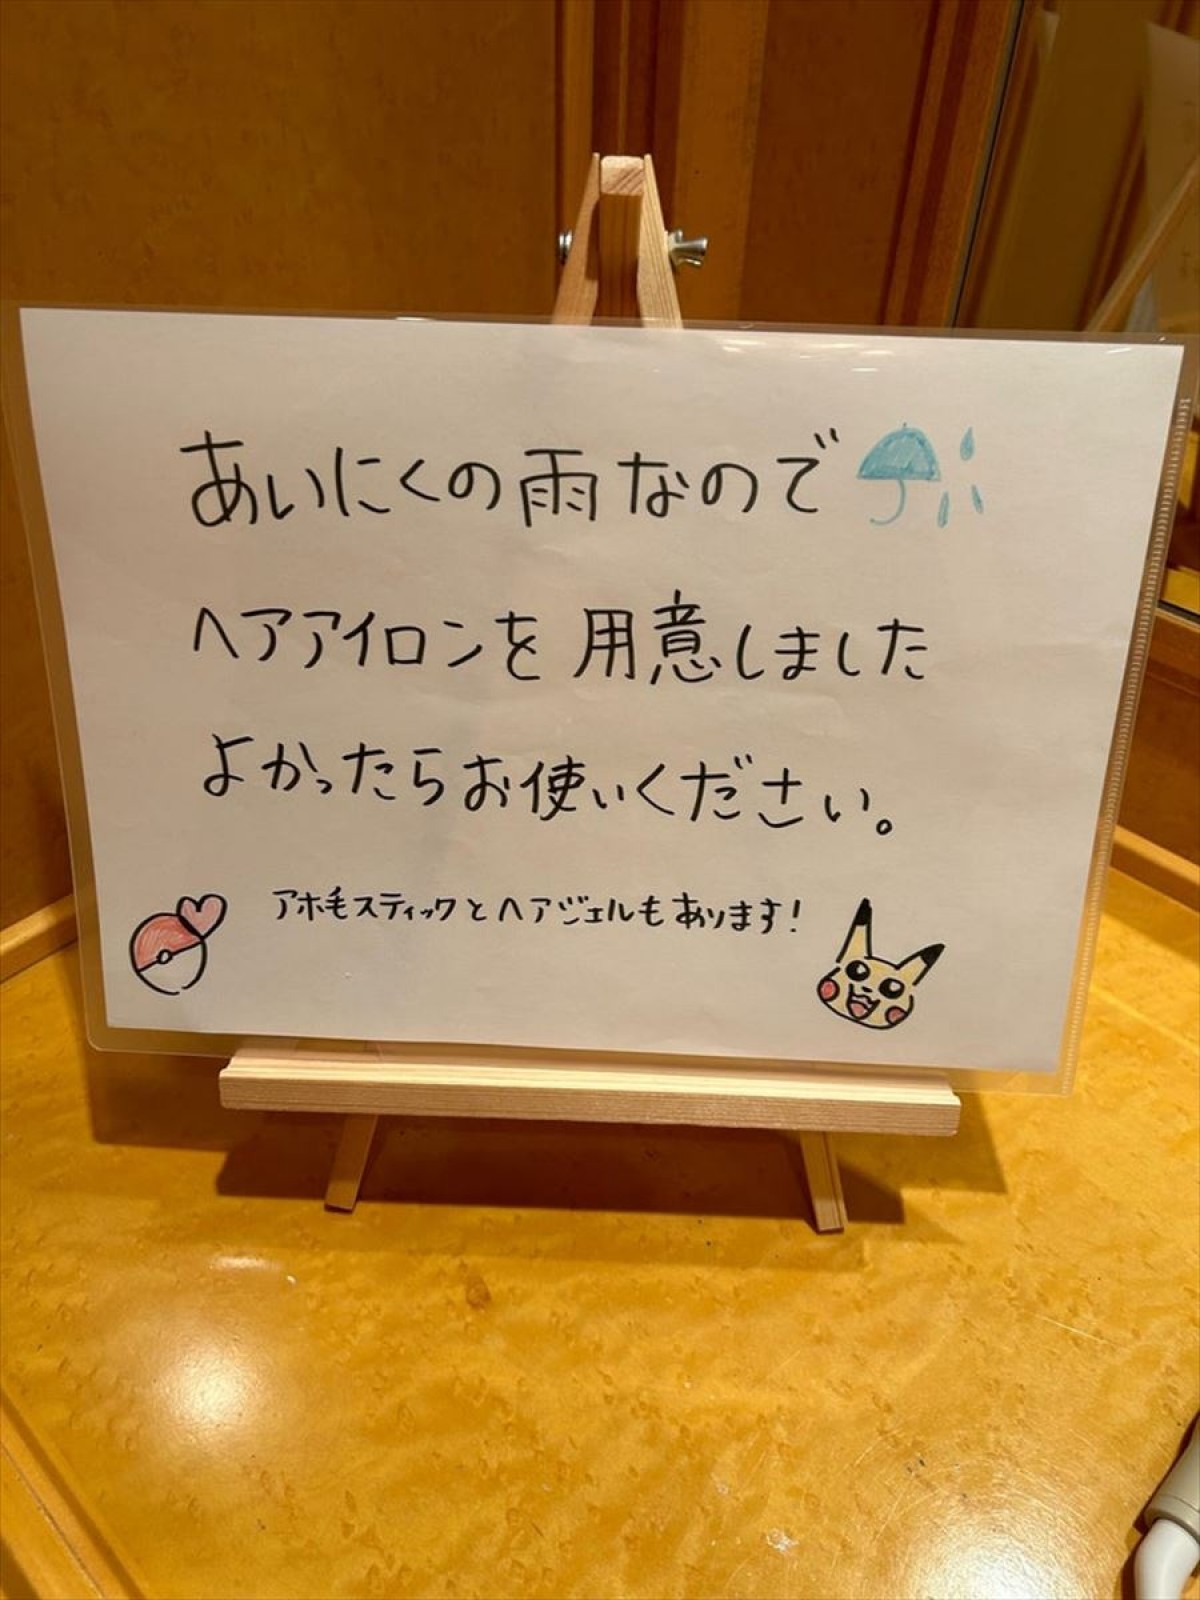 あいにくの雨なので
ヘアアイロンを用意しました
よかったらお使いください。
アホ毛スティックとヘアジェルもあります!